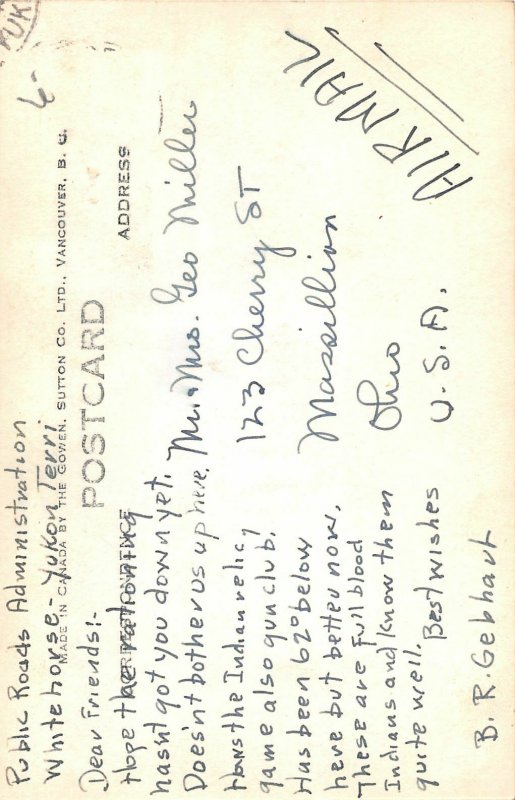 UK
6-
AIR MAIL
Public Roads Administration
Whitehorse - Yukon Terri
MADE IN CANADA BY THE GOWEN, SUTTON CO. LTD., VANCOUVER, B. C.
POSTCARD
CORRESPONDENCE
ADDRESS
Dear Friends:-
Hope the rationing
hasnt got you down yet.
Doesn't bother us up here.
Hows the Indian relic
game also gun club.
Has been 62° below
here but better now.
These are full blood
Indians and know them
quite well. Best wishes
B. R. Gebhart
Mr. & Mrs. Geo Miller
123 Cherry ST
Massillion
Ohio
U.S.A.